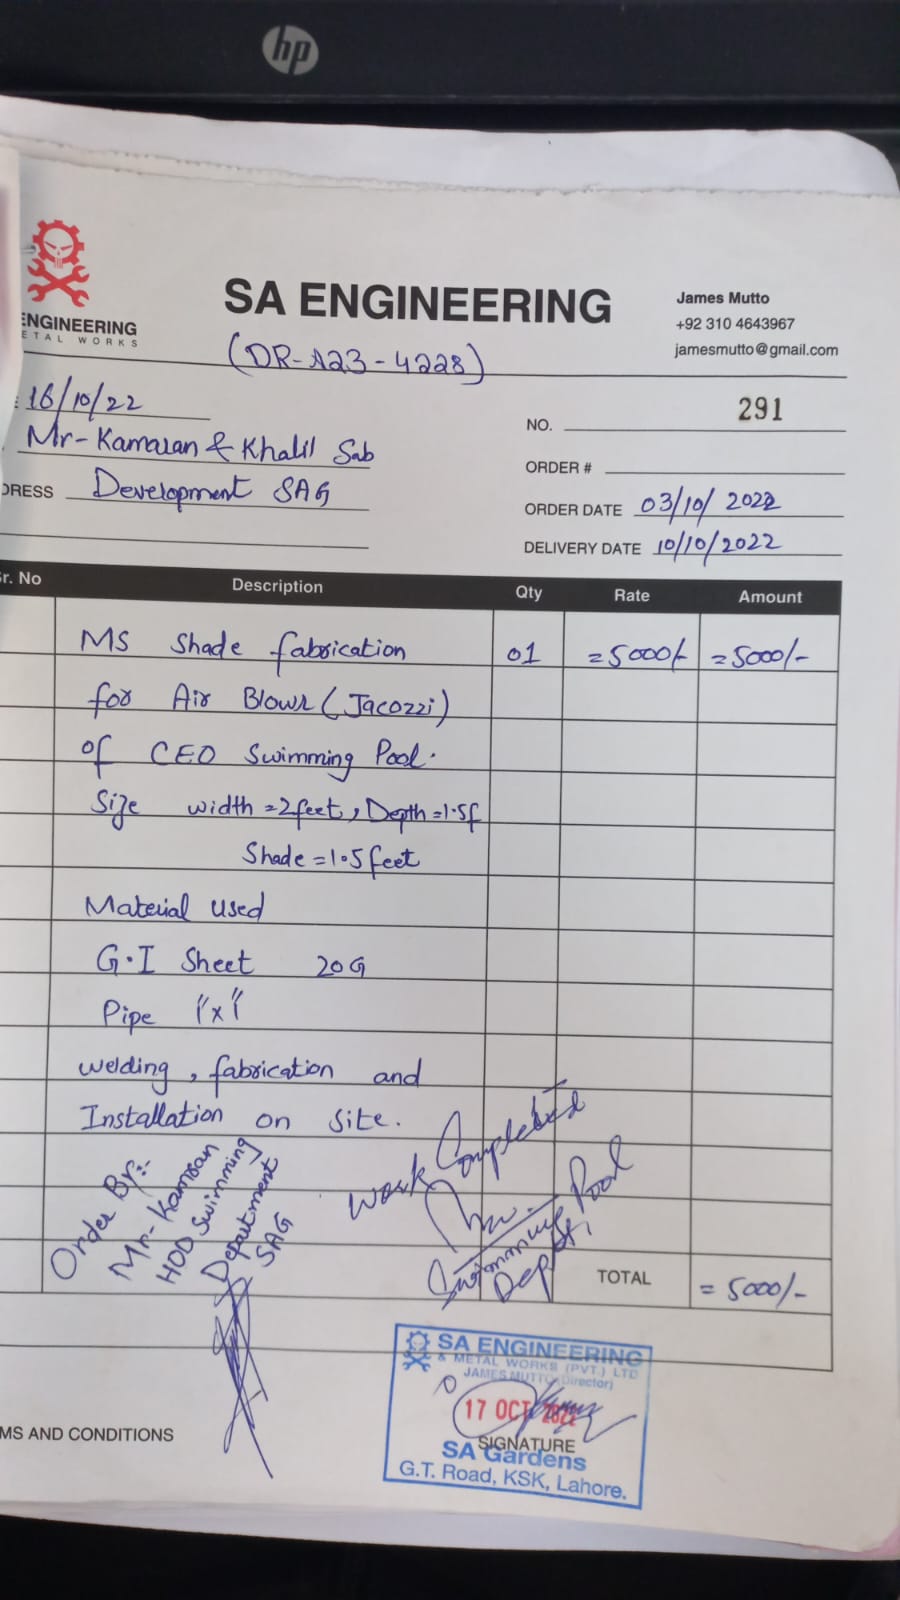 hp
ENGINEERING
ETAL WORKS
SA ENGINEERING
(DR-A23-4228)
James Mutto
+92 310 4643967
jamesmutto@gmail.com
: 16/10/22
NO. 291
Mr-Kamaran & Khalil Sab
ORDER #
DRESS Development SAG
ORDER DATE 03/10/2022
DELIVERY DATE 10/10/2022
Sr. No Description Qty Rate Amount
MS Shade fabrication 01 =5000/- =5000/-
for Air Blowr (Jacozzi)
of CEO Swimming Pool.
Size width =2feet, Depth =1.5f
Shade =1.5feet
Material used
G.I Sheet 20G
Pipe 1"x1"
welding, fabrication and
Installation on site.
Order By:-
Mr-Kamran
HOD Swimming
Department
SAG
Work Completed
Swimming Pool
Deptt;
TOTAL =5000/-
SA ENGINEERING
& METAL WORKS (PVT.) LTD
JAMES MUTTO (Director)
17 OCT 2022
SIGNATURE
SA Gardens
G.T. Road, KSK, Lahore.
MS AND CONDITIONS